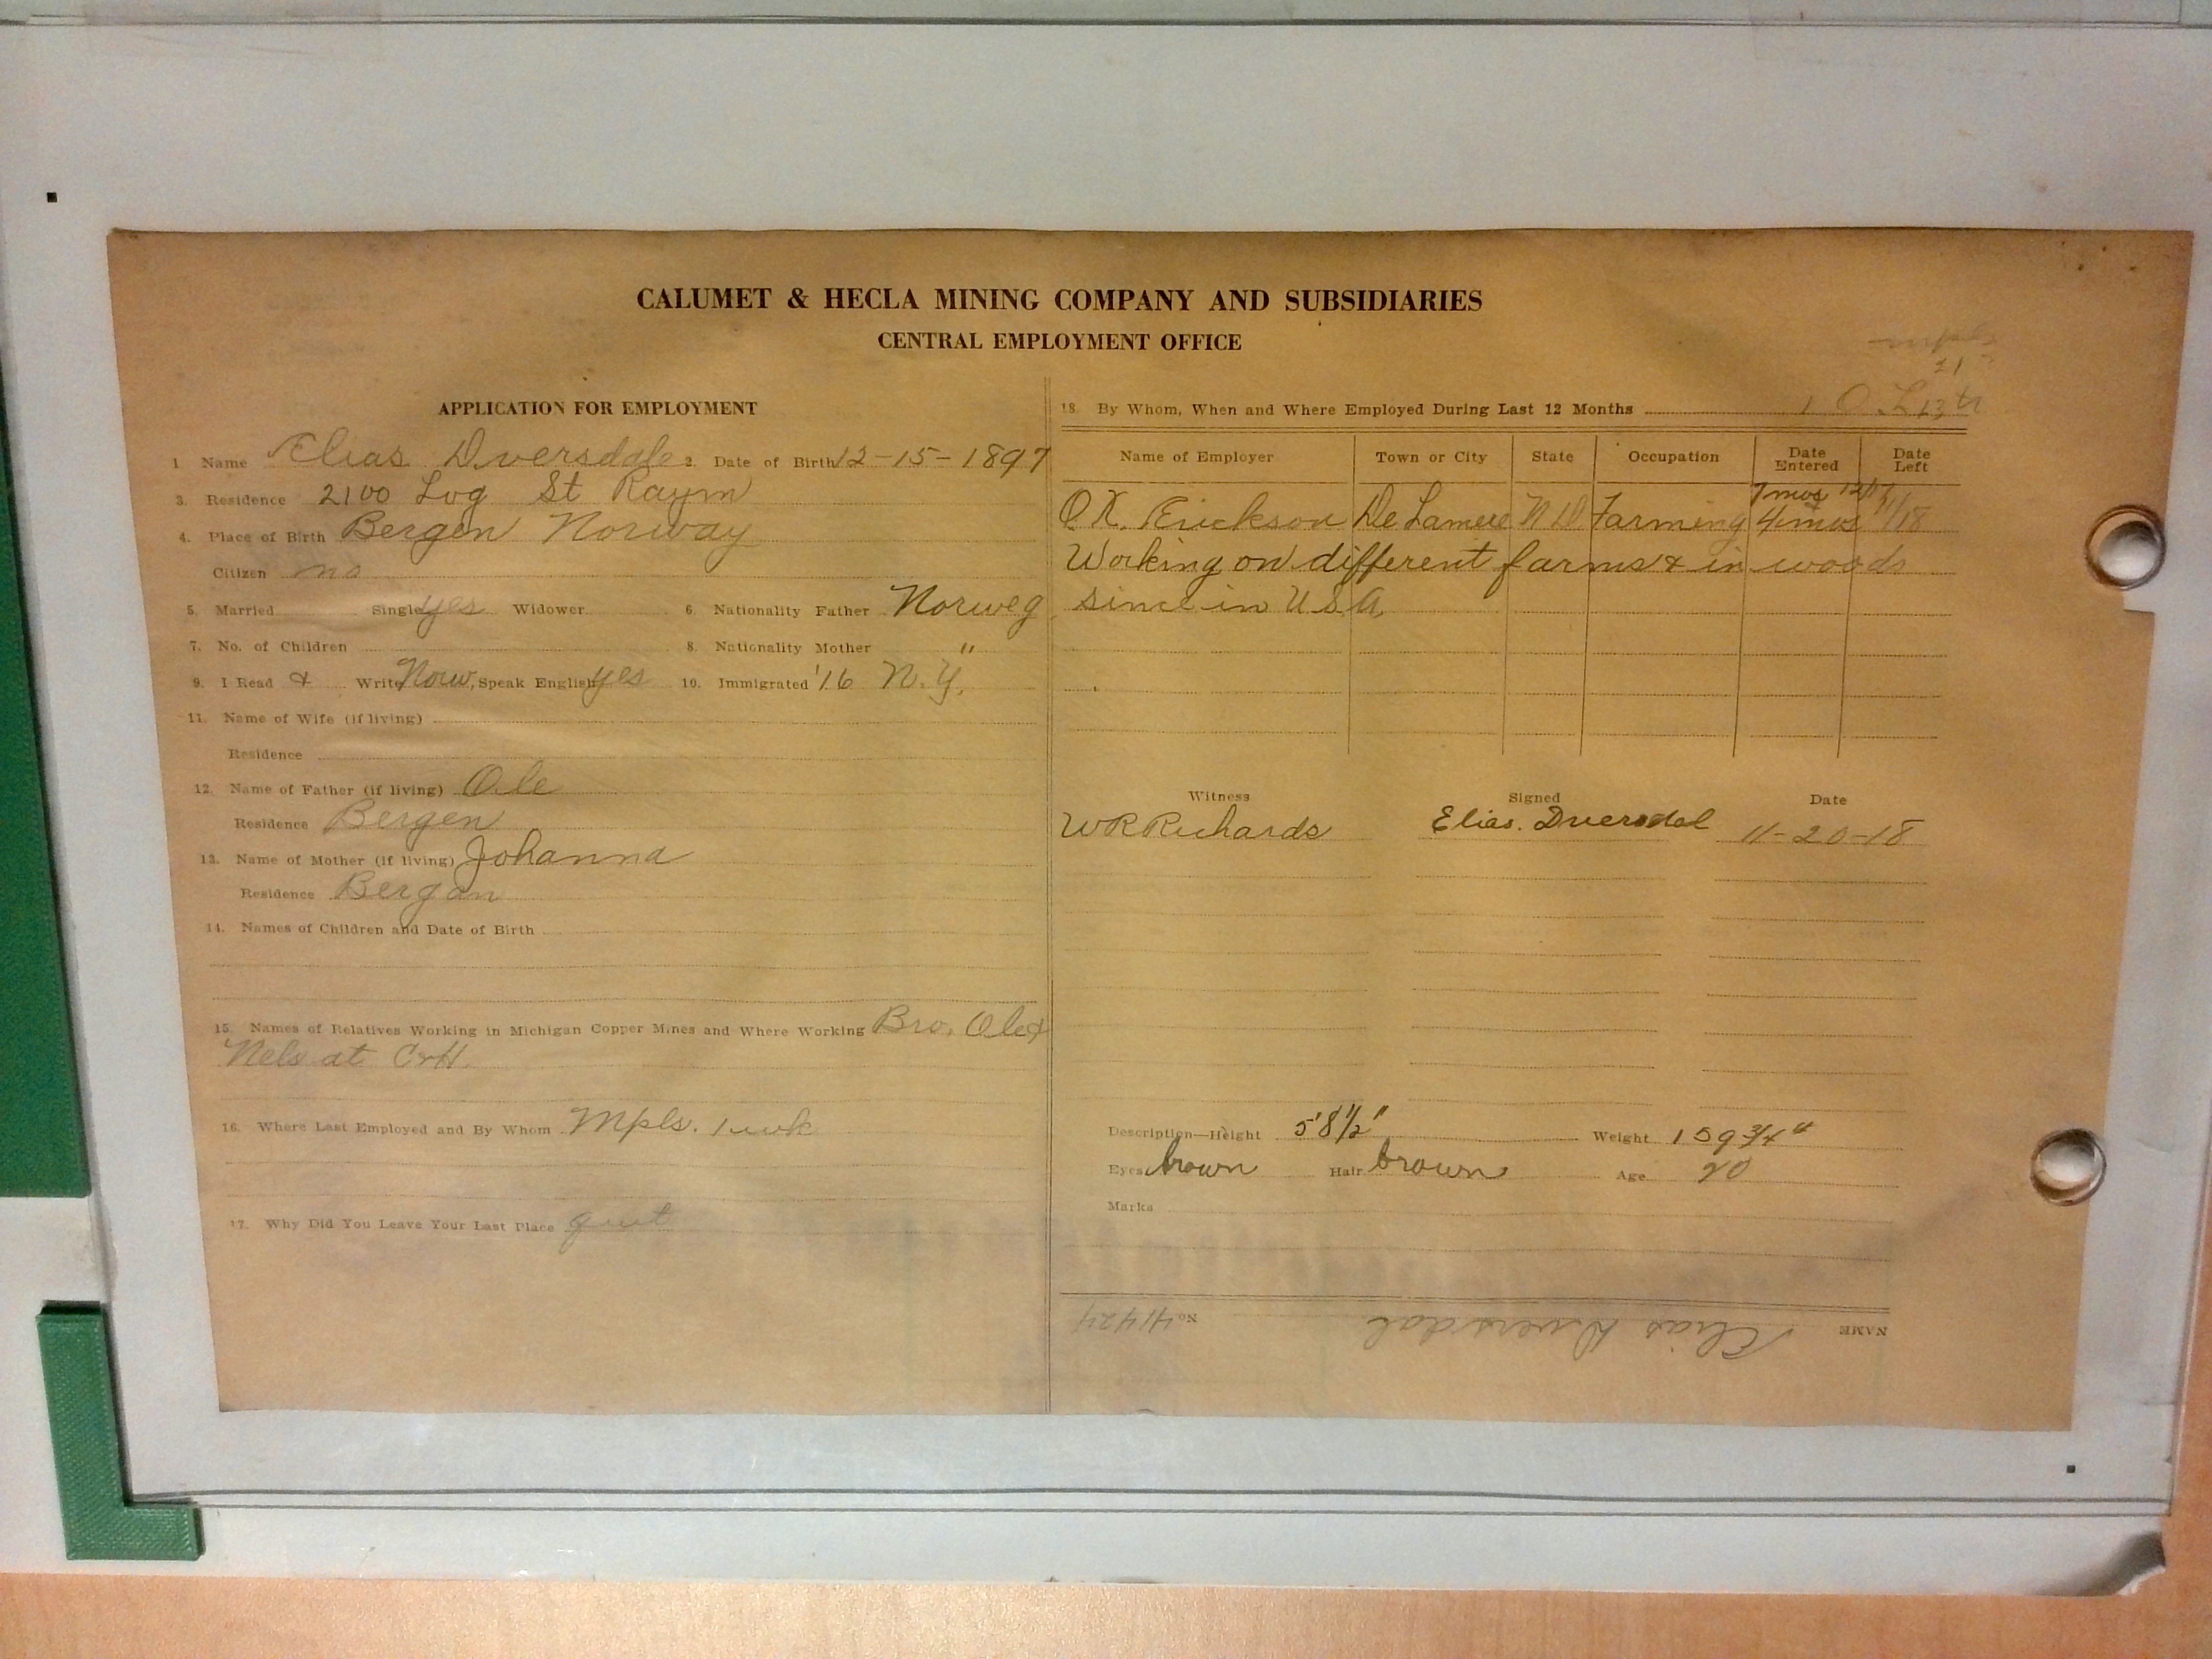 CALUMET & HECLA MINING COMPANY AND SUBSIDIARIES
CENTRAL EMPLOYMENT OFFICE
APPLICATION FOR EMPLOYMENT
1 Name Elias Dversdale 2. Date of Birth 12-15-1897
3. Residence 2100 Log St Raym
4. Place of Birth Bergen Norway
Citizen no
5. Married Single yes Widower 6. Nationality Father Norweg
7. No. of Children 8. Nationality Mother "
9. I Read & Write Norw, Speak English yes 10. Immigrated '16 N.Y.
11. Name of Wife (if living)
Residence
12. Name of Father (if living) Ole
Residence Bergen
13. Name of Mother (if living) Johanna
Residence Bergan
14. Names of Children and Date of Birth
15. Names of Relatives Working in Michigan Copper Mines and Where Working Bro. Ole &
Nels at C&H
16. Where Last Employed and By Whom Mpls. 1 wk
17. Why Did You Leave Your Last Place quit
21
18. By Whom, When and Where Employed During Last 12 Months
Name of Employer Town or City State Occupation Date Entered Date Left
7 mos
O.K. Erickson De Lamere N D Farming 4 mos 11/18
Working on different farms & in woods
since in U.S.A.
Witness Signed Date
WR Richards Elias. Dversdal 11-20-18
Description—Height 5'8½" Weight 159¾ #
Eyes brown Hair brown Age 20
Marks
NAME Elias Dversdal No. 41424